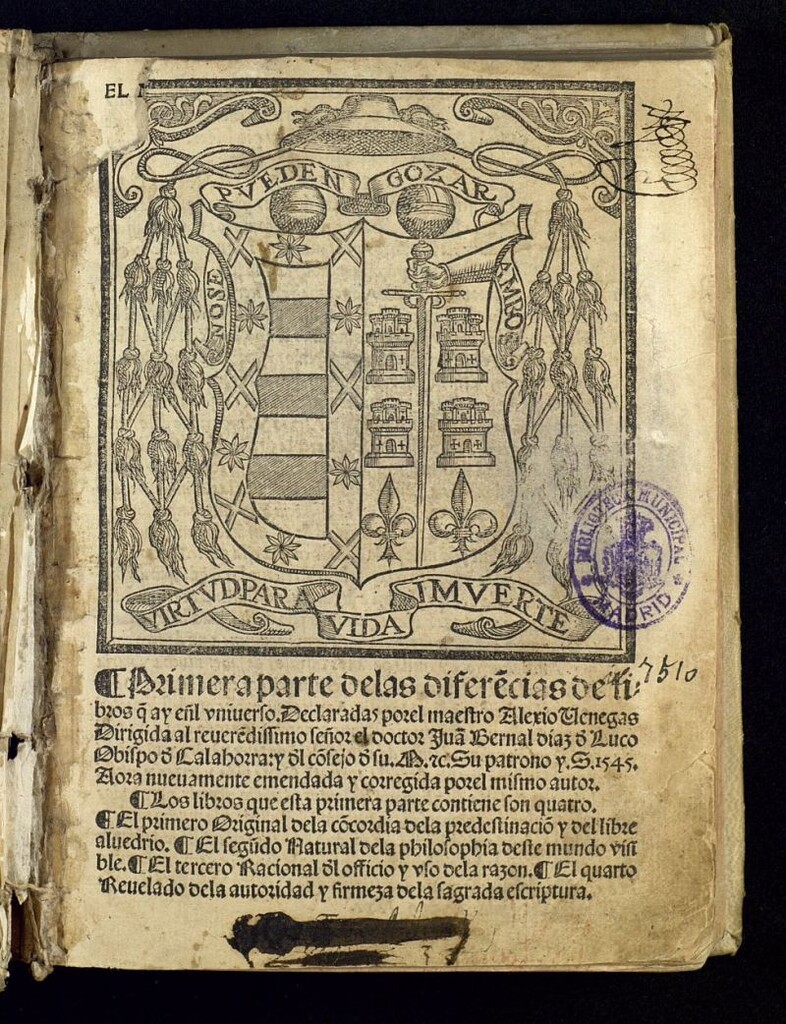 EL
PVEDEN GOZAR
NOSE
AMBO
VIRTVDPARA VIDA IMVERTE
BIBLIOTECA MUNICIPAL
MADRID
7510
¶Primera parte delas diferẽcias de li-
bros q̃ ay eñl vniuerso. Declaradas porel maestro Alexio Uenegas
Dirigida al reuerẽdissimo señor el doctor Juã Bernal diaz d̃ Luco
Obispo d̃ Calahorra: y d̃l cõsejo d̃ su. M. ⁊c. Su patrono y. S. 1545.
Aora nueuamente emendada y corregida porel mismo autor.
¶Los libros que esta primera parte contiene son quatro.
¶El primero Original dela cõcordia dela predestinaciõ y del libre
aluedrio. ¶El segũdo Natural dela philosophia deste mundo visi
ble. ¶El tercero Racional d̃l officio y vso dela razon. ¶El quarto
Reuelado dela autoridad y firmeza dela sagrada escriptura.